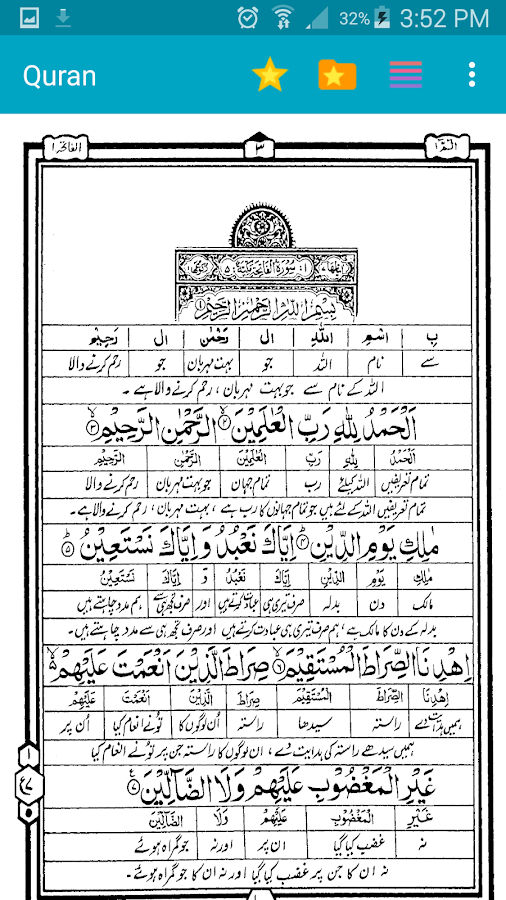 32% 3:52 PM
Quran
الٓمّٓ ١ ٣ الفاتحة ١
اٰیٰتھا ٧ ١: سُوْرَةُ الْفَاتِحَةِ مَكِّيَّةٌ: ٥ رکوعھا ١
بِسْمِ اللّٰهِ الرَّحْمٰنِ الرَّحِيْمِ ١
بِ اِسْمِ اللّٰهِ ال رَحْمٰن ال رَحِيْمِ
سے نام اللہ جو بہت مہربان جو رحم کرنے والا
اللہ کے نام سے جو بہت مہربان ، رحم کرنے والا ہے ۔
اَلْحَمْدُ لِلّٰهِ رَبِّ الْعٰلَمِيْنَ ٢ الرَّحْمٰنِ الرَّحِيْمِ ٣
اَلْحَمْدُ لِلّٰهِ رَبِّ الْعٰلَمِيْنَ الرَّحْمٰنِ الرَّحِيْمِ
تمام تعریفیں اللہ کیلئے رب تمام جہان جو بہت مہربان رحم کرنے والا
تمام تعریفیں اللہ کے لئے ہیں جو تمام جہانوں کا رب ہے ، بہت مہربان ، رحم کرنے والا ہے۔
مٰلِكِ يَوْمِ الدِّيْنِ ٤ اِيَّاكَ نَعْبُدُ وَ اِيَّاكَ نَسْتَعِيْنُ ٥
مٰلِكِ يَوْمِ الدِّيْنِ اِيَّاكَ نَعْبُدُ وَ اِيَّاكَ نَسْتَعِيْنُ
مالک دن بدلہ صرف تیری ہی عبادت کرتے ہیں اور صرف تجھ ہی سے ہم مدد چاہتے ہیں
بدلہ کے دن کا مالک ہے ، ہم صرف تیری ہی عبادت کرتے ہیں اور صرف تجھ ہی سے مدد چاہتے ہیں۔
اِهْدِنَا الصِّرَاطَ الْمُسْتَقِيْمَ ٦ صِرَاطَ الَّذِيْنَ اَنْعَمْتَ عَلَيْهِمْ
اِهْدِنَا الصِّرَاطَ الْمُسْتَقِيْمَ صِرَاطَ الَّذِيْنَ اَنْعَمْتَ عَلَيْهِمْ
ہمیں ہدایت دے راستہ سیدھا راستہ اُن لوگوں کا تُو نے انعام کیا اُن پر
ہمیں سیدھے راستہ کی ہدایت دے ، ان لوگوں کا راستہ جن پر تُو نے انعام کیا
غَيْرِ الْمَغْضُوْبِ عَلَيْهِمْ وَلَا الضَّآلِّيْنَ ٧
غَيْرِ الْمَغْضُوْبِ عَلَيْهِمْ وَلَا الضَّآلِّيْنَ
نہ غضب کیا گیا ان پر اور نہ جو گمراہ ہوئے
نہ ان کا جن پر غضب کیا گیا اور نہ ان کا جو گمراہ ہوئے۔
١